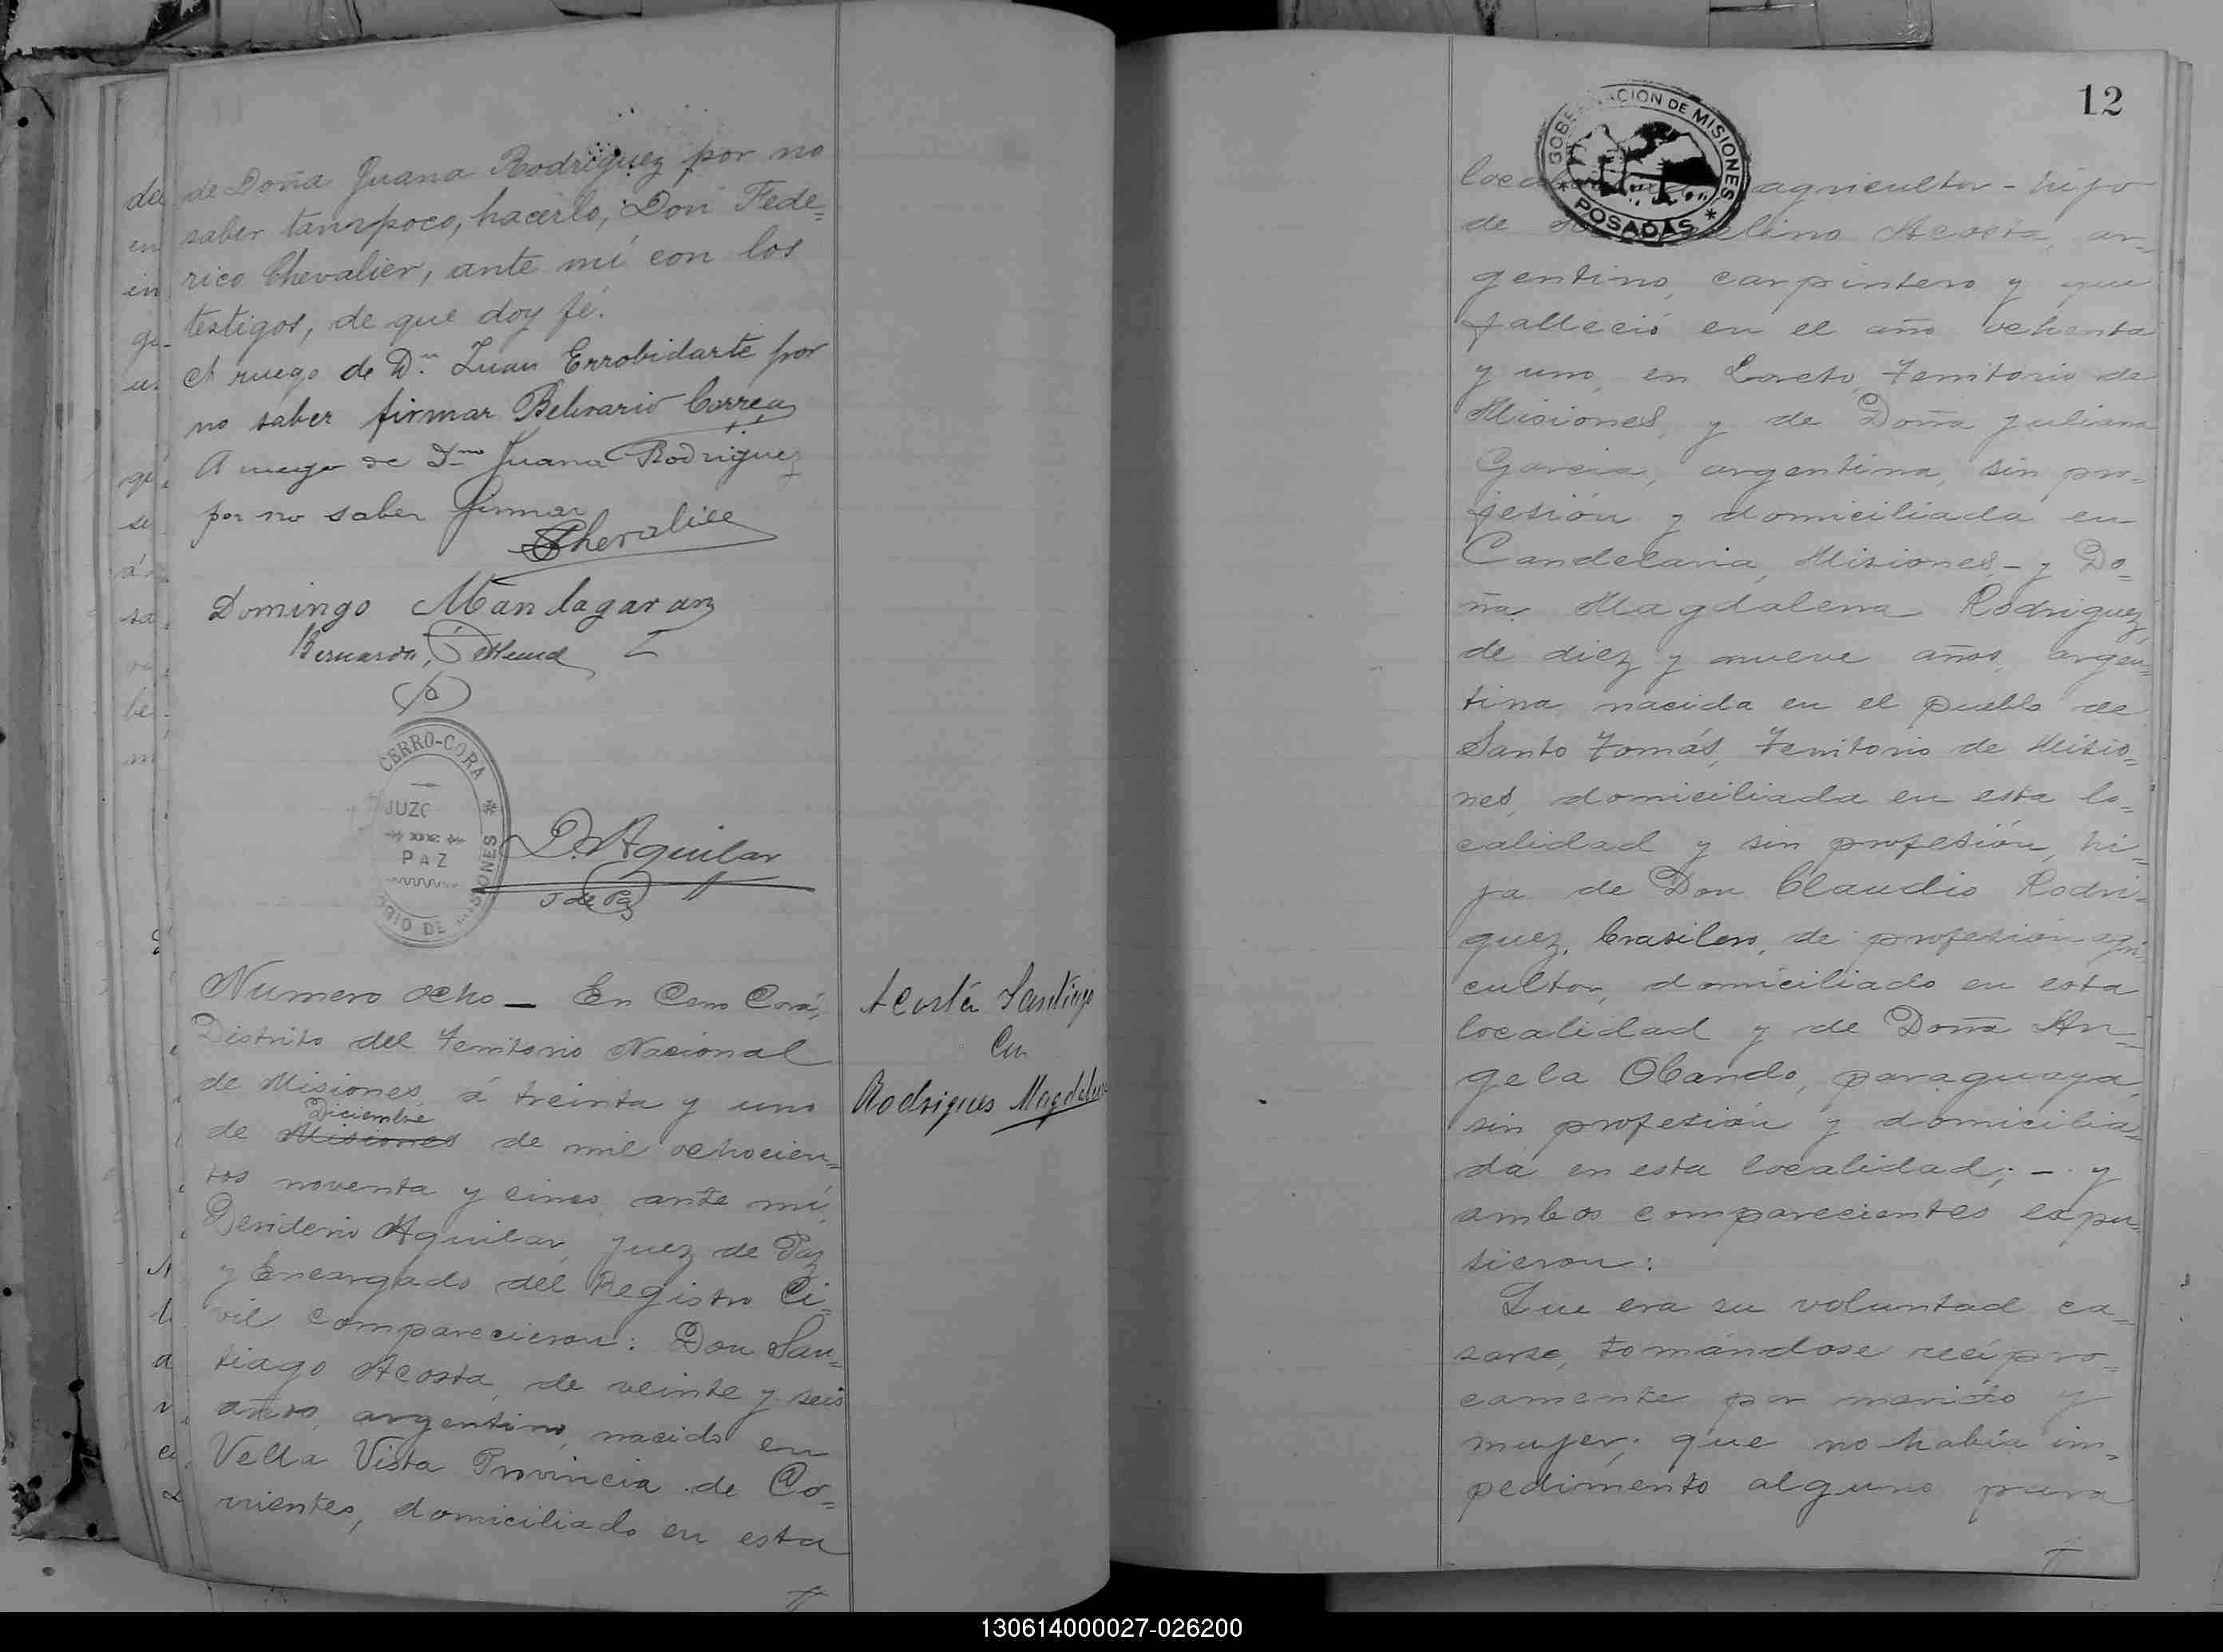 de Doña Juana Rodriguez por no
saber tampoco, hacerlo, Don Fede=
rico Chevalier, ante mí con los
testigos, de que doy fé.
A ruego de Dn. Juan Errobidarte por
no saber firmar Belisario Correa
A ruego de Dña Juana Rodriguez
por no saber firmar
Chevalier
Domingo Manlagaranz
Bernardo
CERRO-CORA
JUZG
PAZ
ORIO DE MISIONES
D. Aguilar
J de Paz
Numero ocho — En Cerro Corá,
Distrito del Territorio Nacional
de Misiones, á treinta y uno
Diciembre
de Misiones de mil ochocien=
tos noventa y cinco, ante mí,
Desiderio Aguilar, Juez de Paz
y Encargado del Registro Ci=
vil comparecieron: Don San=
tiago Acosta, de veinte y seis
años, argentino, nacido en
Vella Vista Provincia de Co=
rrientes, domiciliado en esta
Acosta Santiago
Con
Rodrigues Magdalena
12
GOBERNACION DE MISIONES
* POSADAS *
loca agricultor - hijo
de lino Acosta, ar=
gentino, carpintero y que
falleció en el año ochenta
y uno, en Loreto, Territorio de
Misiones, y de Doña Juliana
Garcia, argentina, sin pro=
fesión y domiciliada en
Candelaria, Misiones - y Do=
ña Magdalena Rodriguez,
de diez y nueve años, argen=
tina, nacida en el pueblo de
Santo Tomás, Territorio de Misio=
nes, domiciliada en esta lo=
calidad y sin profesión, hi=
ja de Don Claudio Rodri=
guez, brasilero, de profesión agri=
cultor, domiciliado en esta
localidad y de Doña An=
gela Obando, paraguaya,
sin profesión y domicilia=
da en esta localidad; - y
ambos comparecientes expu=
sieron:
Que era su voluntad ca=
sarse, tomándose recípro=
camente por marido y
mujer; que no había im=
pedimento alguno para
130614000027-026200